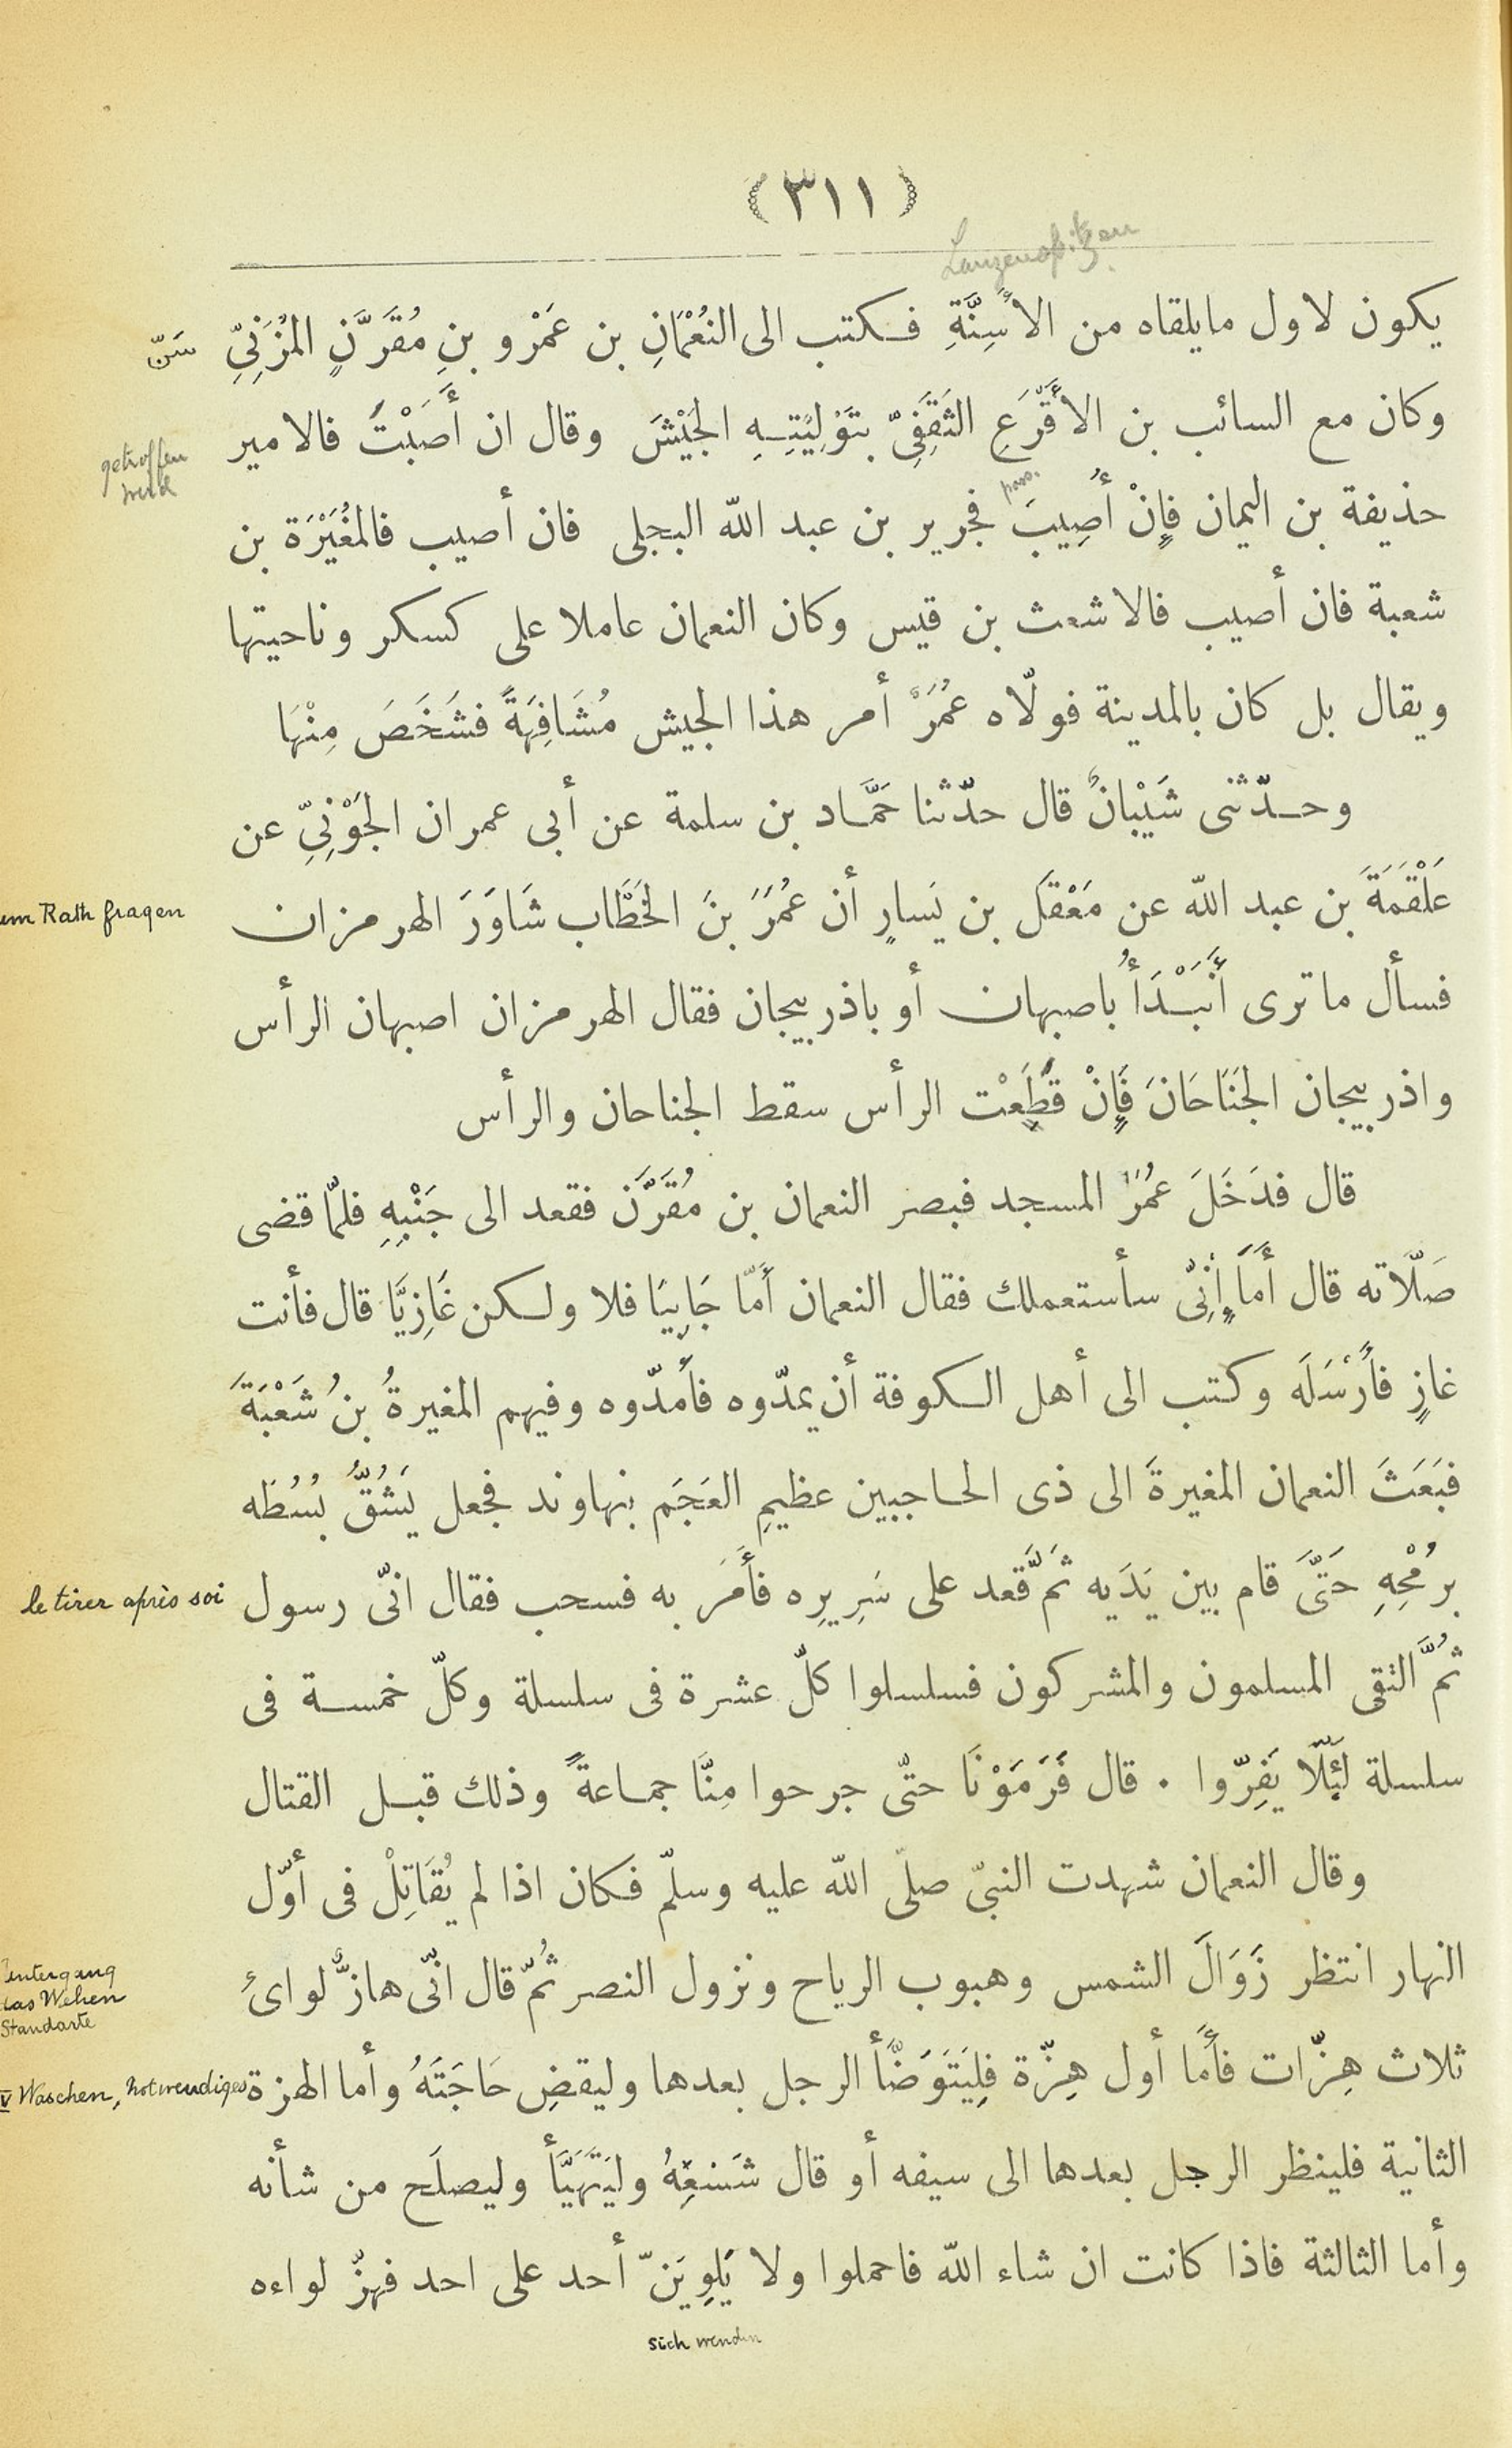 (٣١١)
Lanzenspitzen
يكون لاول مايلقاه من الأَسِنَّةِ فـكتب الى النُعْمَانِ بن عَمْرو بنِ مُقَرَّنٍ المُزَنِيِّ
سَنّ
وكان مع السائب بن الأقْرَعِ الثَقَفِيّ بتَوْلِيُتِـهِ الجَيْشَ وقال ان أَصَبْتَ فالامير
getroffen
wird
pass.
حذيفة بن اليمان فإِنْ أُصِيبَ فجرير بن عبد اللّه البجلى فان أصيب فالمُغَيْرَة بن
شعبة فان أصيب فالاشعث بن قيس وكان النعمان عاملا على كسكر وناحيتها
ويقال بل كان بالمدينة فولّاه عُمَرُ أمر هذا الجيش مُشَافِهَةً فشَخَصَ مِنْهَا
وحـدّثنى شَيْبانُ قال حدّثنا حَمَّـاد بن سلمة عن أبى عمران الجَوْنِيِّ عن
عَلْقَمَةَ بن عبد اللّه عن مَعْقَل بن يَسارٍ أن عُمَرَ بنَ الخَطَّاب شَاوَرَ الهرمزان
um Rath fragen
فسأل ما ترى أَنَبْـدَأُ باصبهان أو باذربيجان فقال الهرمزان اصبهان الرأس
واذربيجان الجَنَاحَانَ فَإِنْ قُطِعْت الرأس سقط الجناحان والرأس
قال فدَخَلَ عمُرُ المسجد فبصر النعمان بن مُقَرَّن فقعد الى جَنْبِهِ فلمّا قضى
صَلّاته قال أَمَا إِنِّى سأستعملك فقال النعمان أَمّا جَابِيَا فلا ولـكن غَازِيًّا قال فأنت
غازٍ فأَرْسَلَه وكتب الى أهل الـكوفة أن يمدّوه فأَمدّوه وفيهم المغيرةُ بنُ شَعْبَةَ
فبَعَثَ النعمان المغيرةَ الى ذى الحـاجبين عظيمِ العَجَم بنهاوند فجعل يَشُقُّ بُسُطَه
برُمْحِهِ حَتَّى قام بين يَدَيه ثَمَّ قعد على سَرِيرِه فأَمَرَ به فسحب فقال انّى رسول
le tirer après soi
ثُمَّ التقى المسلمون والمشركون فسلسلوا كلّ عشرة فى سلسلة وكلّ خمسـة فى
سلسلة لِئَلّا يَفِرّوا . قال فَرَمَوْنَا حتّى جرحوا مِنَّا جمـاعةً وذلك قبـل القتال
وقال النعمان شهدت النبىّ صلّى اللّه عليه وسلّم فـكان اذا لم يُقَاتِلْ فى أوّل
النهار انتظر زَوَالَ الشمس وهبوب الرياح ونزول النصر ثُمّ قال انّى هازُّ لوائ
Untergang
das Wehen
Standarte
ثلاث هِزّات فأَمّا أول هِزّة فلِيَتَوَضَّأ الرجل بعدها وليقضِ حَاجَتَهُ وأما الهزة
V Waschen, notwendiges
الثانية فلينظر الرجل بعدها الى سيفه أو قال شَسْعِهُ وليَتَهَيَّأ وليصلَح من شأنه
وأما الثالثة فاذا كانت ان شاء اللّه فاحملوا ولا يَلوِيَنّ أحد على احد فهزّ لواءه
sich wenden